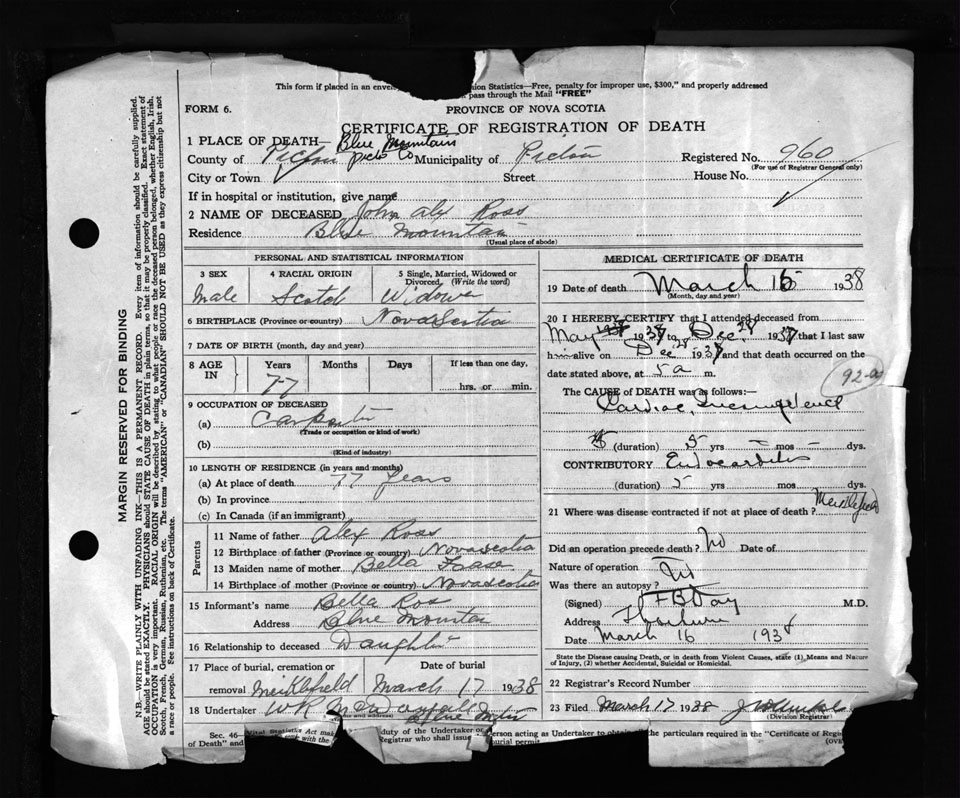 This form if placed in an envel ision Statistics—Free, penalty for improper use, $300," and properly addressed
pass through the Mail "FREE"
FORM 6.
PROVINCE OF NOVA SCOTIA
CERTIFICATE OF REGISTRATION OF DEATH
1 PLACE OF DEATH— Blue Mountain
County of Pictou Pictou Co Municipality of Pictou Registered No. 960
(For use of Registrar General only)
City or Town Street House No.
If in hospital or institution, give name
2 NAME OF DECEASED John Alex Ross
Residence Blue Mountain
(Usual place of abode)
PERSONAL AND STATISTICAL INFORMATION
3 SEX 4 RACIAL ORIGIN 5 Single, Married, Widowed or
Divorced. (Write the word)
Male Scotch Widower
6 BIRTHPLACE (Province or country) Nova Scotia
7 DATE OF BIRTH (month, day and year)
8 AGE IN Years Months Days If less than one day,
77 hrs. or min.
9 OCCUPATION OF DECEASED
(a) Carpenter
(Trade or occupation or kind of work)
(b)
(Kind of industry)
10 LENGTH OF RESIDENCE (in years and months)
(a) At place of death 77 Years
(b) In province
(c) In Canada (if an immigrant)
Parents
11 Name of father Alex Ross
12 Birthplace of father (Province or country) Nova Scotia
13 Maiden name of mother Bella Fraser
14 Birthplace of mother (Province or country) Nova Scotia
15 Informant's name Bella Ross
Address Blue Mountain
16 Relationship to deceased Daughter
17 Place of burial, cremation or Date of burial
removal Meiklefield March 17 1938
18 Undertaker W R
and address)
MEDICAL CERTIFICATE OF DEATH
19 Date of death March 15 1938
(Month, day and year)
20 I HEREBY CERTIFY that I attended deceased from
May 1937 to Dec. 28 1937 that I last saw
h alive on Dec 28 1937 and that death occurred on the
date stated above, at 5 a m.
92-a
The CAUSE OF DEATH was as follows:—
Cardiac
(duration) 5 yrs — mos — dys.
CONTRIBUTORY Endocarditis
(duration) 5 yrs. mos. dys.
21 Where was disease contracted if not at place of death? Meiklefield
Did an operation precede death? No Date of
Nature of operation
Was there an autopsy? No
(Signed) M.D.
Address Thorburn
Date March 16 1938
State the Disease causing Death, or in death from Violent Causes, state (1) Means and Nature
of Injury, (2) whether Accidental, Suicidal or Homicidal.
22 Registrar's Record Number
23 Filed March 17 1938
(Division Registrar)
Sec. 46— Vital Statistics Act mak duty of the Undertaker or person acting as Undertaker to obtain the particulars required in the "Certificate of Regis
of Death" and Registrar who shall issue burial permit (OVE
MARGIN RESERVED FOR BINDING
N.B.—WRITE PLAINLY WITH UNFADING INK—THIS IS A PERMANENT RECORD. Every item of information should be carefully supplied.
AGE should be stated EXACTLY. PHYSICIANS should STATE CAUSE OF DEATH in plain terms, so that it may be properly classified. Exact statement of
OCCUPATION is very important. RACIAL ORIGIN will be described by stating to what people or race the deceased person belonged, whether English, Irish,
Scotch, French, German, Russian, Ruthenian, etc. The terms "AMERICAN" or "CANADIAN" SHOULD NOT BE USED as they express citizenship but not
a race or people. See instructions on back of Certificate.